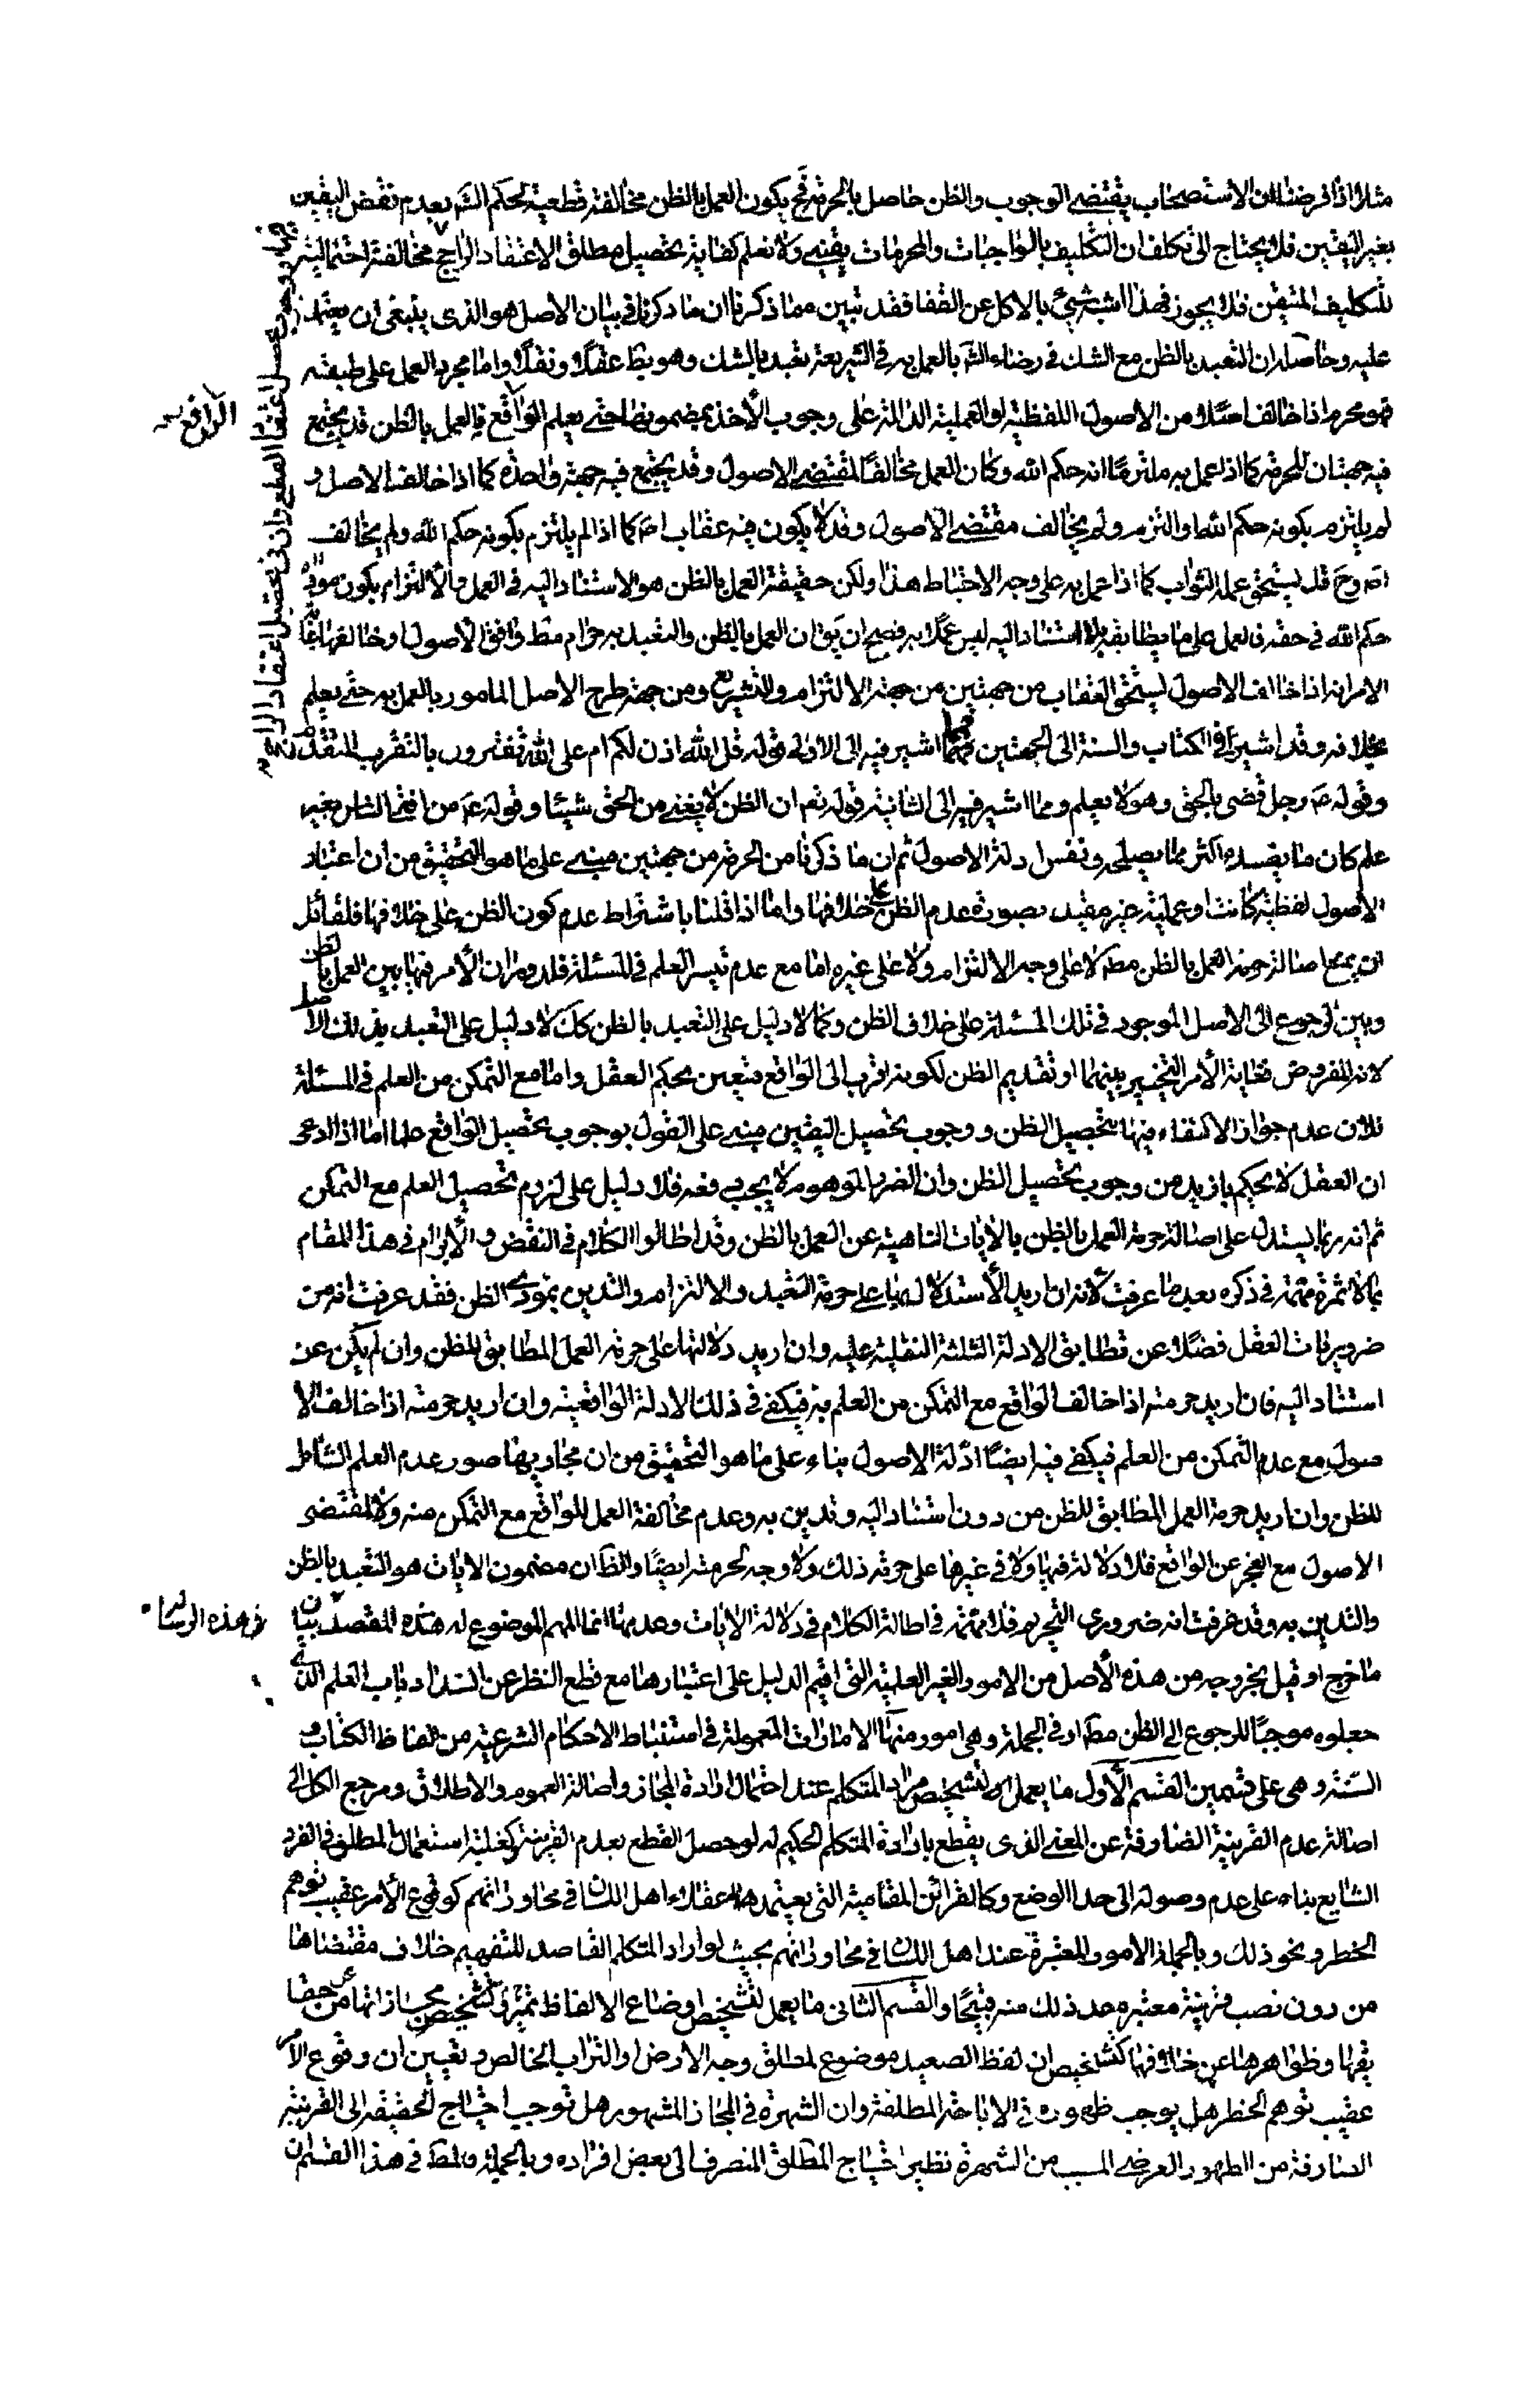 مثلا اذا فرضنا ان الاستصحاب يقتضى الوجوب والظن حاصل بالحرمة فح يكون العمل بالظن مخالفة قطعية لحكم الش بعدم نقض اليقين
بغير اليقين فلا يحتاج الى تكلف ان التكليف بالواجبات والمحرمات يقينى ولا نعلم كفاية تحصيل مطلق الاعتقاد الراجح مخالفة احتمالية
للتكليف المتيقن فلا يجوز فهذا اشبه شئ بالاكل عن القفا فقد تبين مما ذكرنا ان ما ذكرنا فى بيان الاصل هو الذى ينبغى ان يعتمد
عليه وحاصله ان التعبد بالظن مع الشك فى رضاء الش بالعمل به فى الشريعة تعبد بالشك وهو بط عقلا ونقلا واما مجرد العمل على طبقه
فهو محرم اذا خالف اصلا من الاصول اللفظية او العملية الدالة على وجوب الاخذ بمضمونها حتى يعلم الواقع فالعمل بالظن قد يجتمع
فيه جهتان للحرمة كما اذا عمل به ملتزما انه حكم الله وكان العمل مخالفا لمقتضى الاصول وقد يجتمع فيه جهة واحدة كما اذا خالف الاصل و
لم يلتزم بكونه حكم الله او التزم ولم يخالف مقتضى الاصول وقد لا يكون فيه عقاب اص كما اذا لم يلتزم بكونه حكم الله ولم يخالف
اص وح قد يستحق عمله الثواب كما اذا عمل به على وجه الاحتياط هذا ولكن حقيقة العمل بالظن هو الاستناد اليه فى العمل والالتزام بكون مؤداه
حكم الله فى حقه فالعمل على ما يطابقه بلا استناد اليه ليس عملا به فصح ان يق ان العمل بالظن والتعبد به حرام مط وافق الاصول او خالفها غاية
الامر انه اذا خالف الاصول يستحق العقاب من جهتين من جهة الالتزام والتشريع ومن جهة طرح الاصل المامور بالعمل به حتى يعلم
بخلافه وقد اشير فى الكتاب والسنة الى الجهتين فمما اشير فيه الى الاولى قوله قل الله اذن لكم ام على الله تفترون بالتقريب المتقدم
وقوله ص وجل قضى بالحق وهو لا يعلم ومما اشير فيه الى الثانية قوله تم ان الظن لا يغنى من الحق شيئا وقوله ع من افتى الناس بغير
علم كان ما يفسده اكثر مما يصلحه ونفس ادلة الاصول ثم ان ما ذكرنا من الحرمة من جهتين مبنى على ما هو التحقيق من ان اعتبار
الاصول لفظية كانت او عملية غير مقيد بصورة عدم الظن على خلافها واما اذا قلنا باشتراط عدم كون الظن على خلافها فلقائل
ان يمنع اصالة حرمة العمل بالظن مط لا على وجه الالتزام ولا على غيره اما مع عدم تيسر العلم فى المسئلة فلدوران الامر فيها بين العمل بالظن
وبين الرجوع الى الاصل الموجود فى تلك المسئلة على خلاف الظن وكما لا دليل على التعبد بالظن كك لا دليل على التعبد بذلك الاصل
لانه المفروض فغاية الامر التخيير بينهما او تقديم الظن لكونه اقرب الى الواقع فيتعين بحكم العقل واما مع التمكن من العلم فى المسئلة
فلان عدم جواز الاكتفاء فيها بتحصيل الظن ووجوب تحصيل اليقين مبنى على القول بوجوب تحصيل الواقع علما اما اذا ادعى
ان العقل لا يحكم بازيد من وجوب تحصيل الظن وان الضرر الموهوم لا يجب دفعه فلا دليل على لزوم تحصيل العلم مع التمكن
ثم انه ربما يستدل على اصالة حرمة العمل بالظن بالايات الناهية عن العمل بالظن وقد اطالوا الكلام فى النقض والابرام فى هذا المقام
بما لا ثمرة مهمة فى ذكره بعد ما عرفت لانه ان اريد الاستدلال بها على حرمة التعبد والالتزام والتدين بمؤدى الظن فقد عرفت انه من
ضروريات العقل فضلا عن تطابق الادلة الثلثة النقلية عليه وان اريد دلالتها على حرمة العمل المطابق للظن وان لم يكن عن
استناد اليه فان اريد حرمته اذا خالف الواقع مع التمكن من العلم به فيكفى فى ذلك الادلة الواقعية وان اريد حرمته اذا خالف الا
صول مع عدم التمكن من العلم فيكفى فيه ايضا ادلة الاصول بناء على ما هو التحقيق من ان مجاريها صور عدم العلم الشامل
للظن وان اريد حرمة العمل المطابق للظن من دون استناد اليه وتدين به وعدم مخالفة العمل للواقع مع التمكن منه ولا لمقتضى
الاصول مع العجز عن الواقع فلا دلالة فيها ولا فى غيرها على حرمة ذلك ولا وجه لحرمته ايضا والظ ان مضمون الايات هو التعبد بالظن
والتدين به وقد عرفت انه ضرورى التحريم فلا مهم فى اطالة الكلام فى دلالة الايات وعدمها انما المهم الموضوع له هذه المقصد بيان
ما خرج او قيل بخروجه من هذه الاصل من الامور الغير العلمية التى اقيم الدليل على اعتبارها مع قطع النظر عن انسداد باب العلم الذى
جعلوه موجبا للرجوع الى الظن مط او فى الجملة وهى امور منها الامارات المعمولة فى استنباط الاحكام الشرعية من الفاظ الكتاب و
السنة وهى على قسمين القسم الاول ما يعمل لتشخيص مراد المتكلم عند احتمال ارادة المجاز واصالة العموم والاطلاق ومرجع الكل الى
اصالة عدم القرينة الصارفة عن المعنى الذى يقطع بارادة المتكلم الحكيم له لو حصل القطع بعدم القرينة وكغلبة استعمال المطلق فى الفرد
الشايع بناء على عدم وصوله الى حد الوضع وكالقرائن المقامية التى يعتمدها عقلاء اهل اللسان فى محاوراتهم كوقوع الامر عقيب توهم
الخطر ونحو ذلك وبالجملة الامور المعتبرة عند اهل اللسان فى محاوراتهم بحيث لو اراد المتكلم القاصد للتفهيم خلاف مقتضاها
من دون نصب قرينة معتبرة عد ذلك منه قبيحا والقسم الثانى ما يعمل لتشخيص اوضاع الالفاظ وتشخيص مجازاتها من حقا
يقها وظواهرها عن خلافها كتشخيص ان لفظ الصعيد موضوع لمطلق وجه الارض او التراب الخالص وتعيين ان وقوع الامر
عقيب توهم الخطر هل يوجب ظهوره فى الاباحة المطلقة وان الشهرة فى المجاز المشهور هل توجب احتياج الحقيقة الى القرينة
الصارفة من الظهور العرضى المسبب من الشهرة نظير احتياج المطلق المنصرف الى بعض افراده وبالجملة فالمط فى هذا القسم ان
الواقع
فى هذه الرسالة